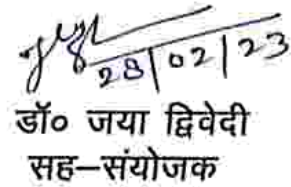 28/02/23
डॉ० जया द्विवेदी
सह-संयोजक